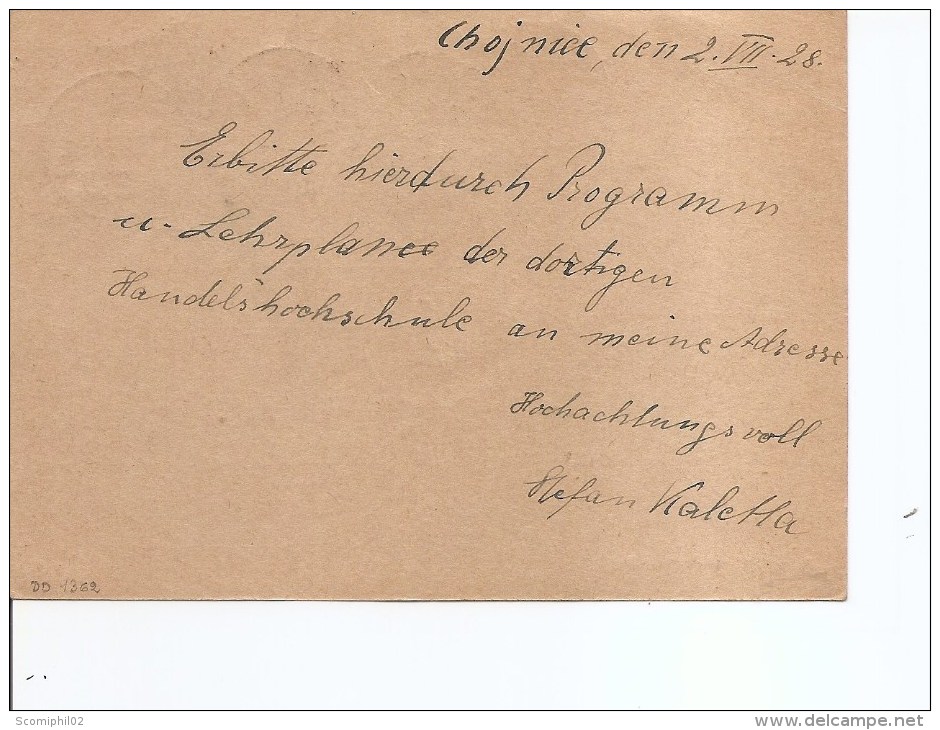 Chojnice, den 2. VII. 28.
Erbitte hierdurch Programm
u. Lehrplane der dortigen
Handelshochschule an meine Adresse
Hochachtungsvoll
Stefan Kaletta
DD 1362
Scomiphil02
www.delcampe.net